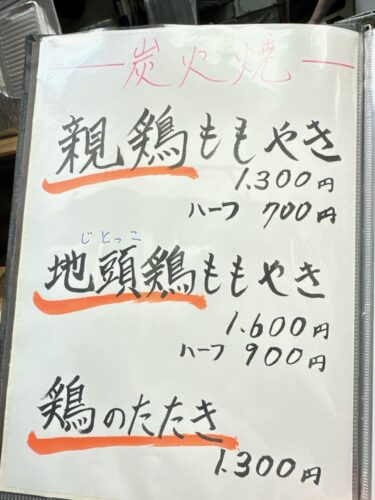 炭火焼
親鶏ももやき
1.300円
ハーフ 700円
じとっこ
地頭鶏ももやき
1.600円
ハーフ 900円
鶏のたたき
1.300円